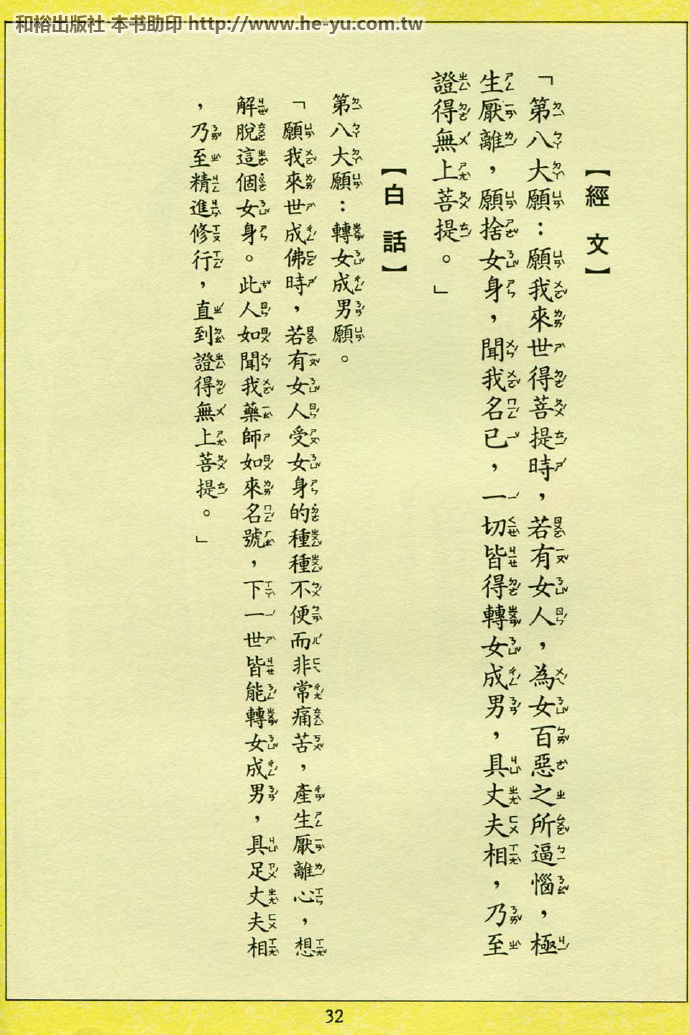 和裕出版社 本书助印 http://www.he-yu.com.tw
【經 文】
「第八大願：願我來世得菩提時，若有女人，為女百惡之所逼惱，極
生厭離，願捨女身，聞我名已，一切皆得轉女成男，具丈夫相，乃至
證得無上菩提。」
【白 話】
第八大願：轉女成男願。
「願我來世成佛時，若有女人受女身的種種不便而非常痛苦，產生厭離心，想
解脫這個女身。此人如聞我藥師如來名號，下一世皆能轉女成男，具足丈夫相
，乃至精進修行，直到證得無上菩提。」
32